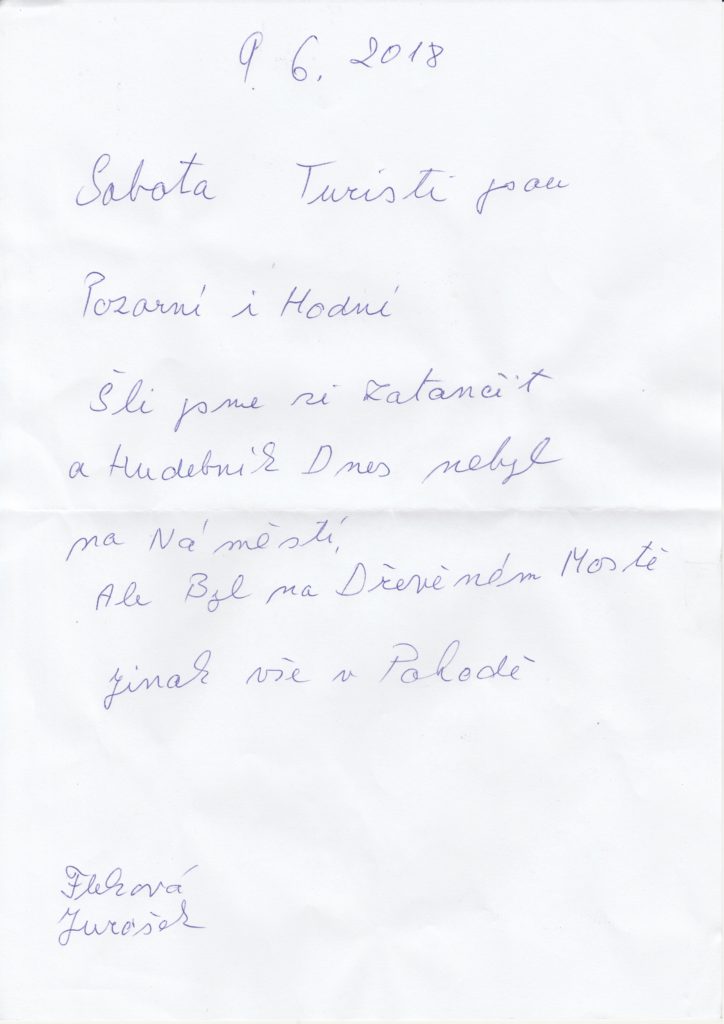 9 6. 2018
Sobota Turisti jsou
Pozorní i Hodní
Šli jsme si zatančit
a Hudebník Dnes nebyl
na Náměstí,
Ale Byl na Dřevěném Mostě
jinak vše v Pohodě
Fleková
Jurášek